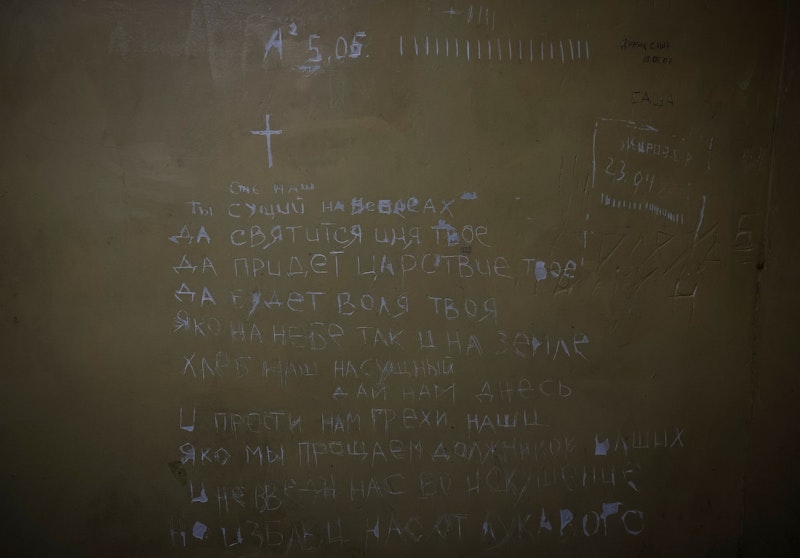 А² 5.05.
САША
23.04
Отче наш
Ты сущий на небесах
Да святится имя твое
Да придет царствие твое
Да будет воля твоя
Яко на небе так и на земле
Хлеб наш насущный
дай нам днесь
И прости нам грехи наши
Яко мы прощаем должников наших
И не введи нас во искушение
Но избавь нас от лукавого